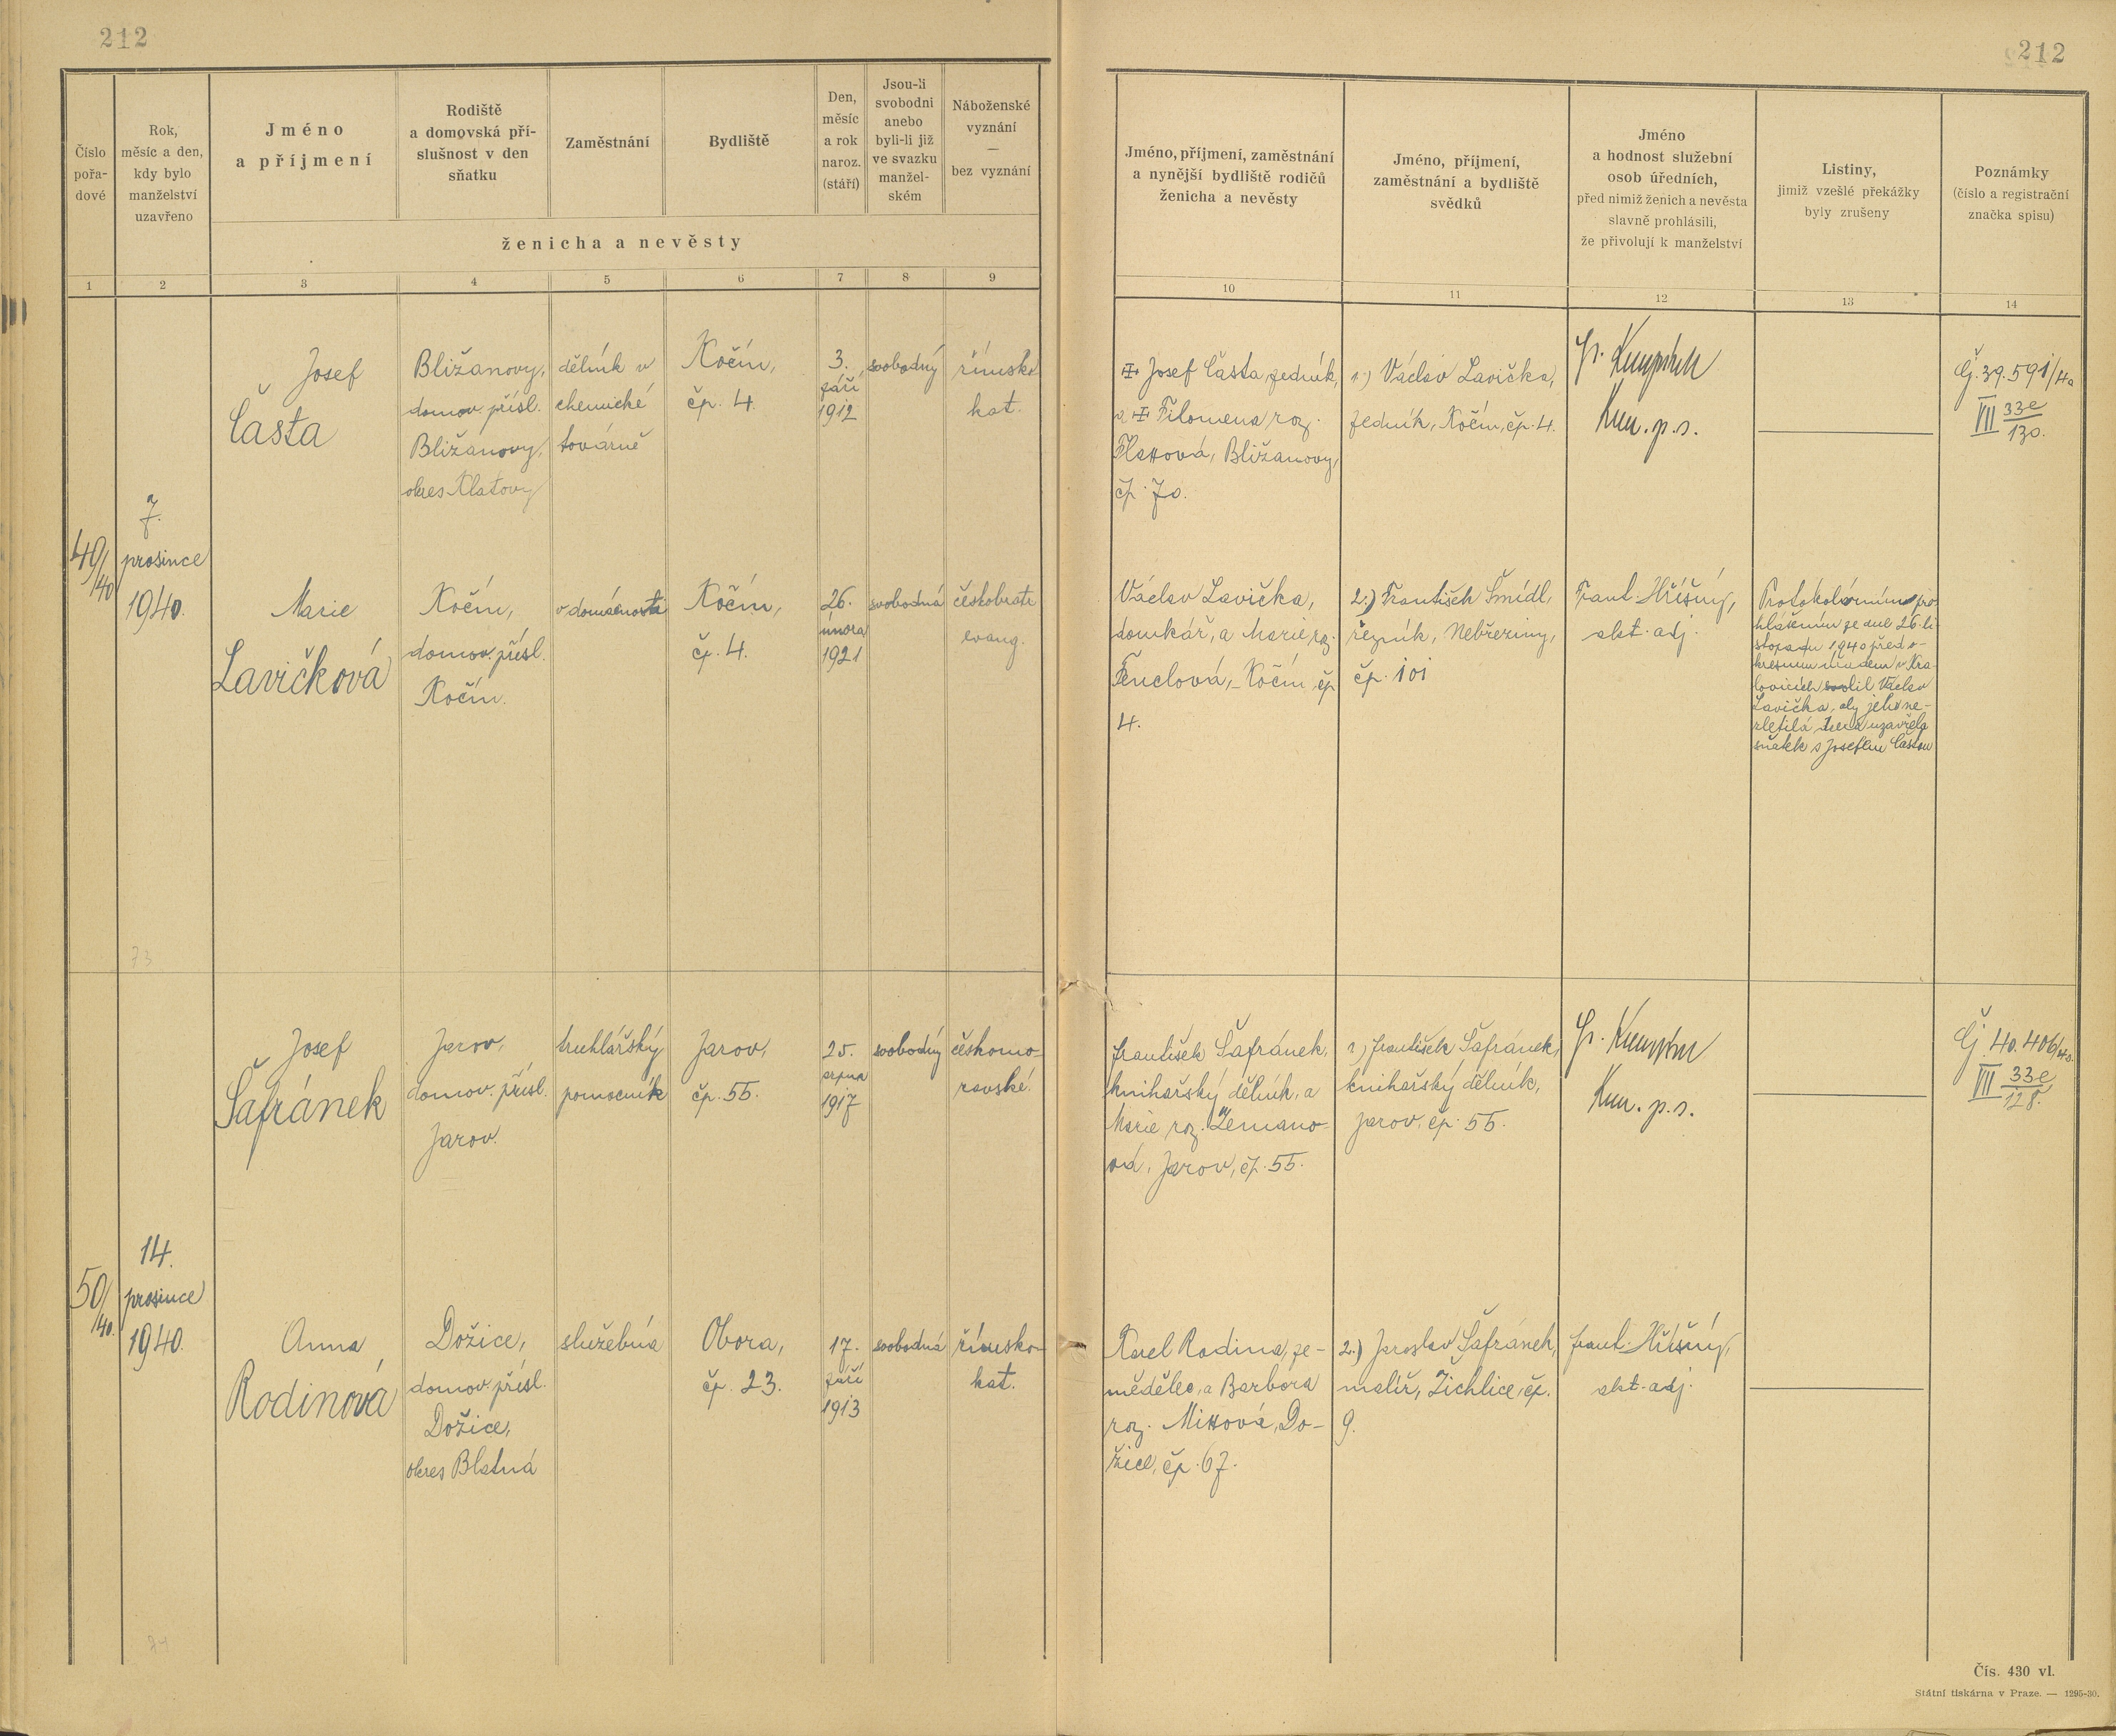 212
212
Číslo
pořa-
dové
Rok,
měsíc a den,
kdy bylo
manželství
uzavřeno
Jméno
a příjmení
Rodiště
a domovská pří-
slušnost v den
sňatku
Zaměstnání
Bydliště
Den,
měsíc
a rok
naroz.
(stáří)
Jsou-li
svobodni
anebo
byli-li již
ve svazku
manžel-
ském
Náboženské
vyznání
—
bez vyznání
ženicha a nevěsty
Jméno, příjmení, zaměstnání
a nynější bydliště rodičů
ženicha a nevěsty
Jméno, příjmení,
zaměstnání a bydliště
svědků
Jméno
a hodnost služební
osob úředních,
před nimiž ženich a nevěsta
slavně prohlásili,
že přivolují k manželství
Listiny,
jimiž vzešlé překážky
byly zrušeny
Poznámky
(číslo a registrační
značka spisu)
1 2 3 4 5 6 7 8 9 10 11 12 13 14
49/40
7.
prosince
1940.
Josef
Časta
Bližanovy,
domov. přísl.
Bližanovy,
okres Klatovy
dělník v
chemické
továrně
Kočín,
čp. 4.
3.
září
1912
svobodný
římsko
kat.
Josef Časta, zedník,
a Filomena roz.
Bližanovy,
čp. 70.
1.) Václav Lavička,
zedník, Kočín, čp. 4.
Kom. p. s.
Čj. 39.591/40
VII 33e/130.
Marie
Lavičková
Kočín,
domov. přísl.
Kočín.
v domácnosti
Kočín,
čp. 4.
26.
února
1921
svobodná
českobratr
evang.
Václav Lavička,
domkář, a Marie roz.
Fenclová, Kočín, čp
4.
2.) František Šmídl,
řezník, Nebřeziny,
čp. 101
Frant. Hříšný,
akt. adj.
Protokolárním pro
hlášením ze dne 26. li
stopadu 1940 před o-
kresním úřadem v Kra
lovicích svolil Václav
Lavička, aby jeho ne-
zletilá dcera uzavřela
sňatek s Josefem Častou
73
50/40.
14.
prosince
1940.
Josef
Šafránek
Jarov,
domov. přísl.
Jarov.
truhlářský
pomocník
Jarov,
čp. 55.
25.
srpna
1917
svobodný
českomo-
ravské.
František Šafránek,
knihařský dělník, a
Marie roz. Zemano-
vá, Jarov, čp. 55.
1.) František Šafránek,
knihařský dělník,
Jarov, čp. 55.
Kom. p. s.
Čj. 40.406/40.
VII 33e/128.
Anna
Rodinová
Dožice,
domov. přísl.
Dožice,
okres Blatná
služebná
Obora,
čp. 23.
17.
září
1913
svobodná
římsko-
kat.
Karel Rodina, ze-
mědělec, a Barbora
roz. Do-
žice, čp. 67.
2.) Jaroslav Šafránek,
malíř, Žichlice, čp.
9.
Frant. Hříšný,
akt. adj.
Čís. 430 vl.
Státní tiskárna v Praze. — 1295-30.